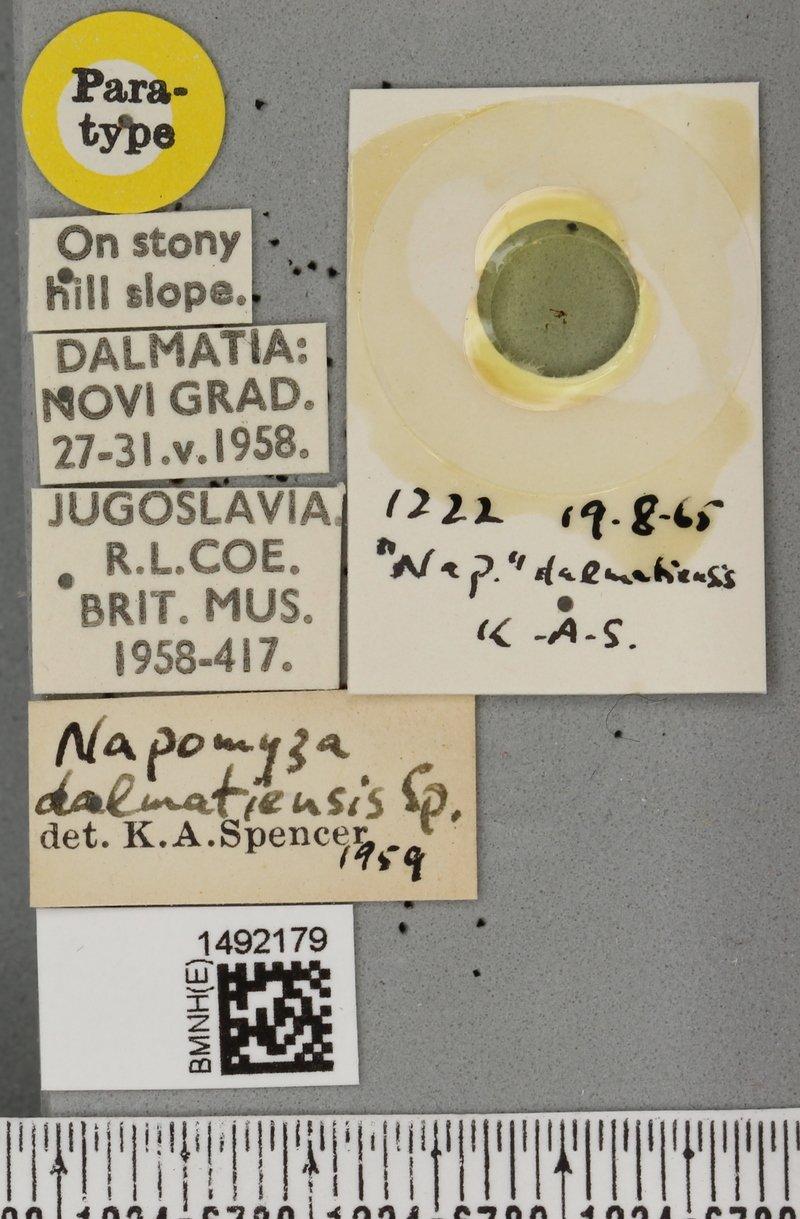 Para-
type
On stony
hill slope.
DALMATIA:
NOVI GRAD.
27-31.v.1958.
JUGOSLAVIA.
R.L.COE.
BRIT. MUS.
1958-417.
1222 19.8.65
"Nap." dalmatiensis
K-A-S.
Napomyza
dalmatiensis Sp.
det. K.A.Spencer
1959
1492179
BMNH(E)